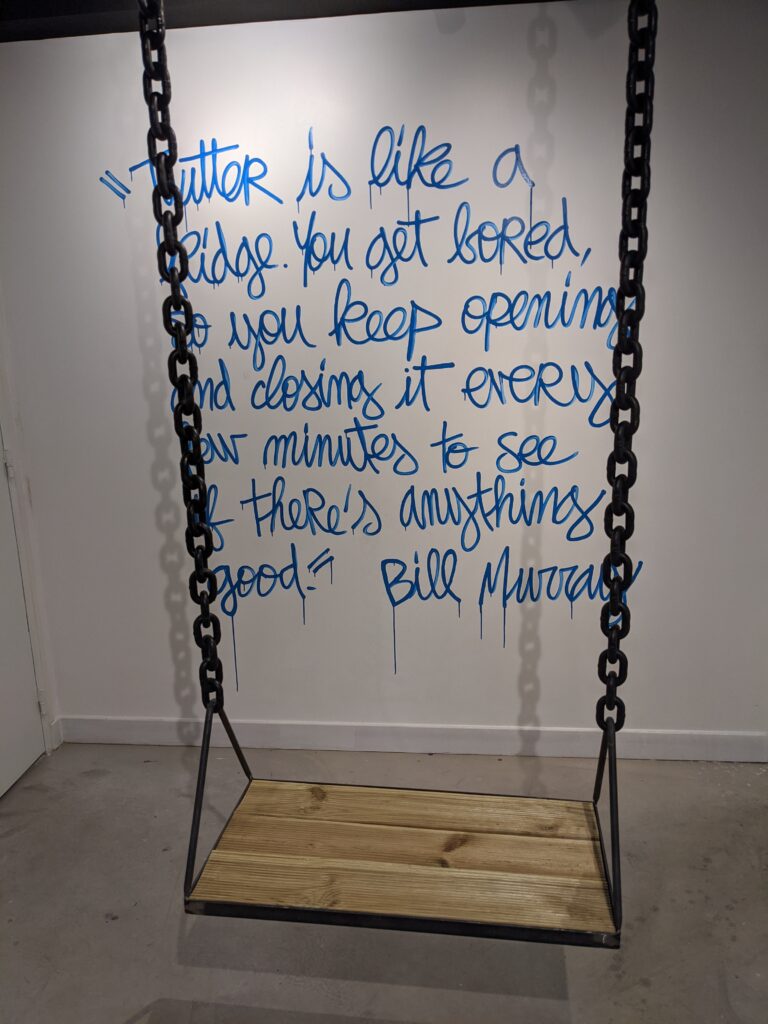 "Twitter is like a
fridge. You get bored,
so you keep opening
and closing it every
few minutes to see
if there's anything
good." Bill Murray